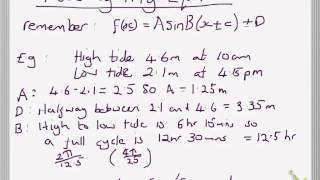 remember: f(x) = A sin B(x ± c) + D
Eg: High tide 4.6m at 10am
Low tide 2.1m at 4.15pm
A: 4.6 - 2.1 = 2.5 so A = 1.25m
D: Halfway between 2.1 and 4.6 = 3.35m
B: High to low tide is 6hr 15mins so
a full cycle is 12hr 30mins = 12.5hr
2π/12.5 (4π/25)